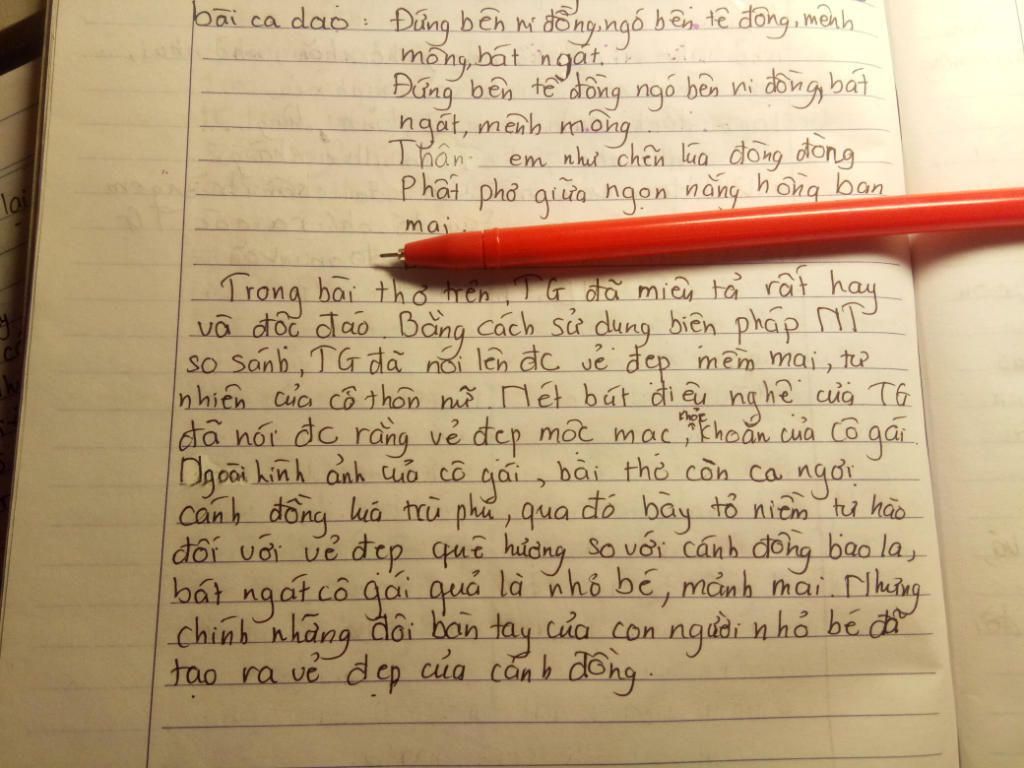 bài ca dao : Đứng bên ni đồng, ngó bên tê đồng, mênh
mông, bát ngát.
Đứng bên tê đồng ngó bên ni đồng, bát
ngát, mênh mông
Thân em như chẽn lúa đòng đòng
Phất phơ giữa ngọn nắng hồng ban
mai.
lai
Trong bài thơ trên, TG đã miêu tả rất hay
và độc đáo. Bằng cách sử dụng biện pháp NT
so sánh, TG đã nói lên đc vẻ đẹp mềm mại, tự
nhiên của cô thôn nữ. Nét bút điệu nghệ của TG
đã nói đc rằng vẻ đẹp mộc mạc, khoắn của cô gái.
Ngoài hình ảnh của cô gái, bài thơ còn ca ngợi
cánh đồng luá trù phú, qua đó bày tỏ niềm tự hào
đối với vẻ đẹp quê hương so với cánh đồng bao la,
bát ngát cô gái quả là nhỏ bé, mảnh mai. Nhưng
chính những đôi bàn tay của con người nhỏ bé đã
tạo ra vẻ đẹp của cánh đồng.